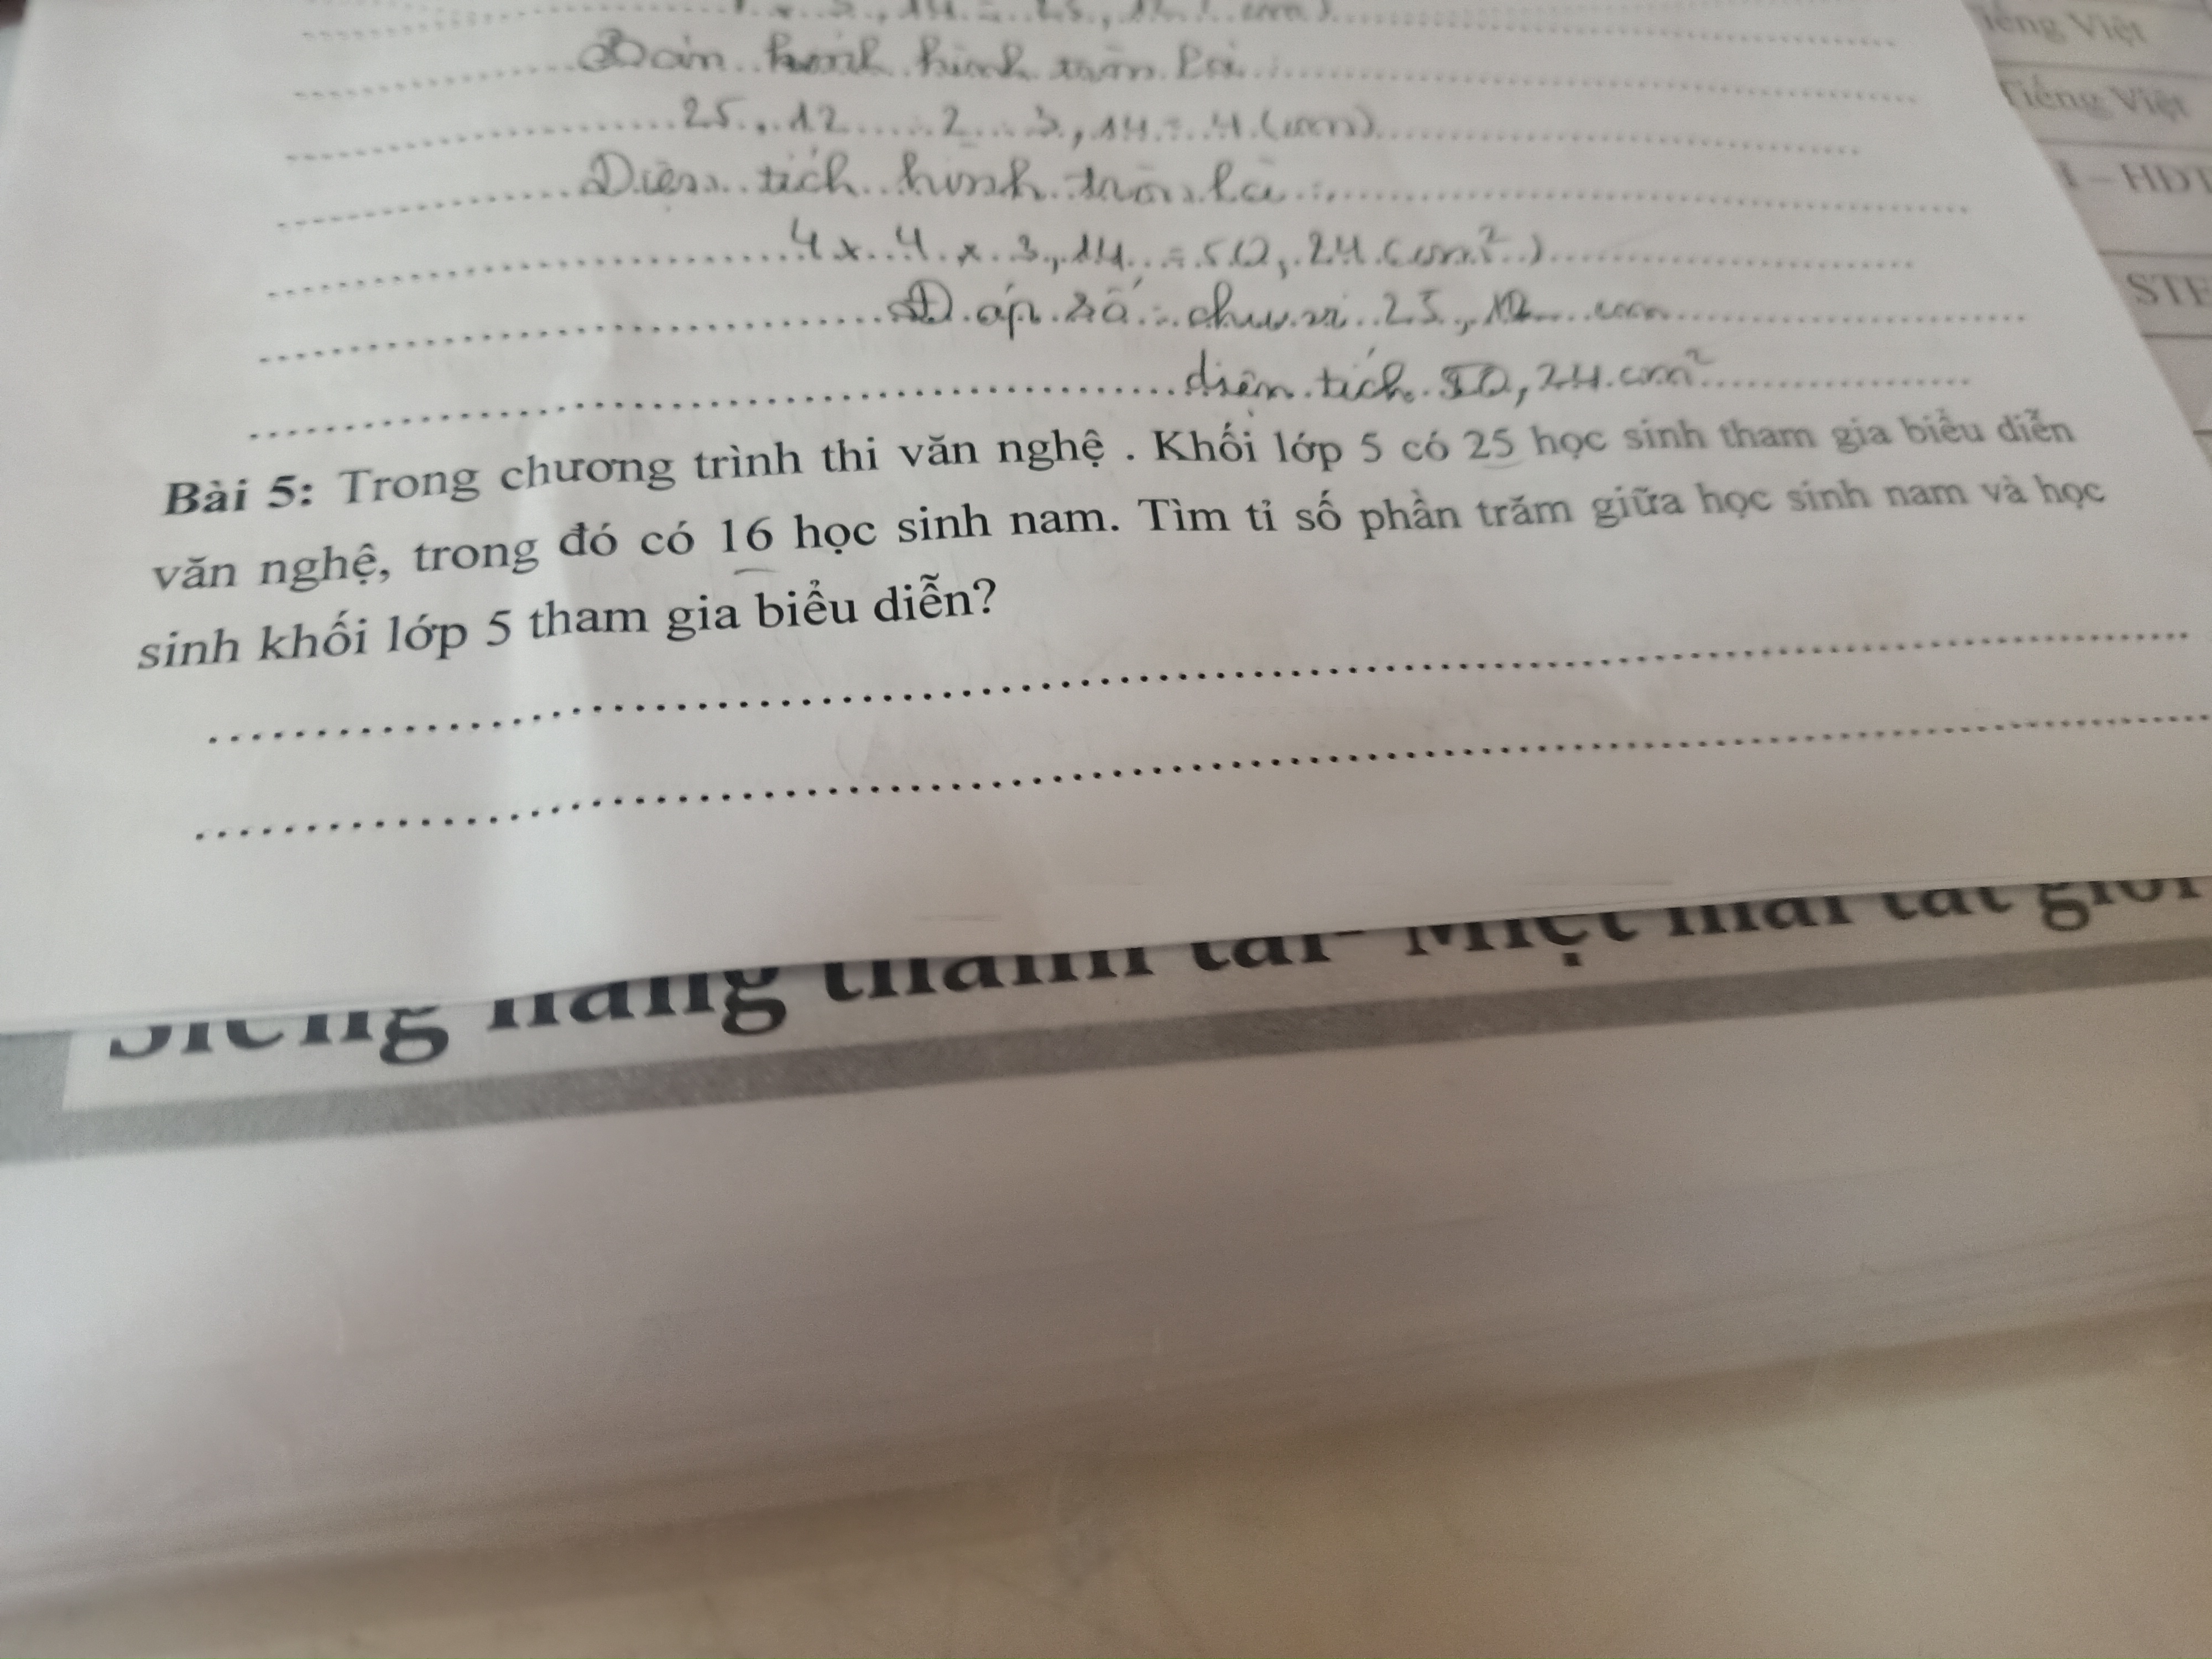 Bán kính hình tròn là :
25,12 2 3,14 = 4 (cm)
Diện tích hình tròn là :
4 x 4 x 3,14 = 50,24 (cm²)
Đáp số : chu vi 25,12 cm
diện tích 50,24 cm²
Bài 5: Trong chương trình thi văn nghệ . Khối lớp 5 có 25 học sinh tham gia biểu diễn
văn nghệ, trong đó có 16 học sinh nam. Tìm tỉ số phần trăm giữa học sinh nam và học
sinh khối lớp 5 tham gia biểu diễn?
Tiếng Việt
Tiếng Việt
– HĐT
STE